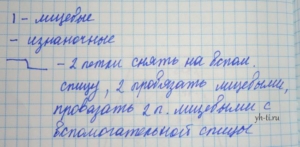 1 - лицевые
- изнаночные
- 2 петли снять на вспом.
спицу, 2 провязать лицевыми,
провязать 2 п. лицевыми с
вспомогательной спицы
yh-ti.ru